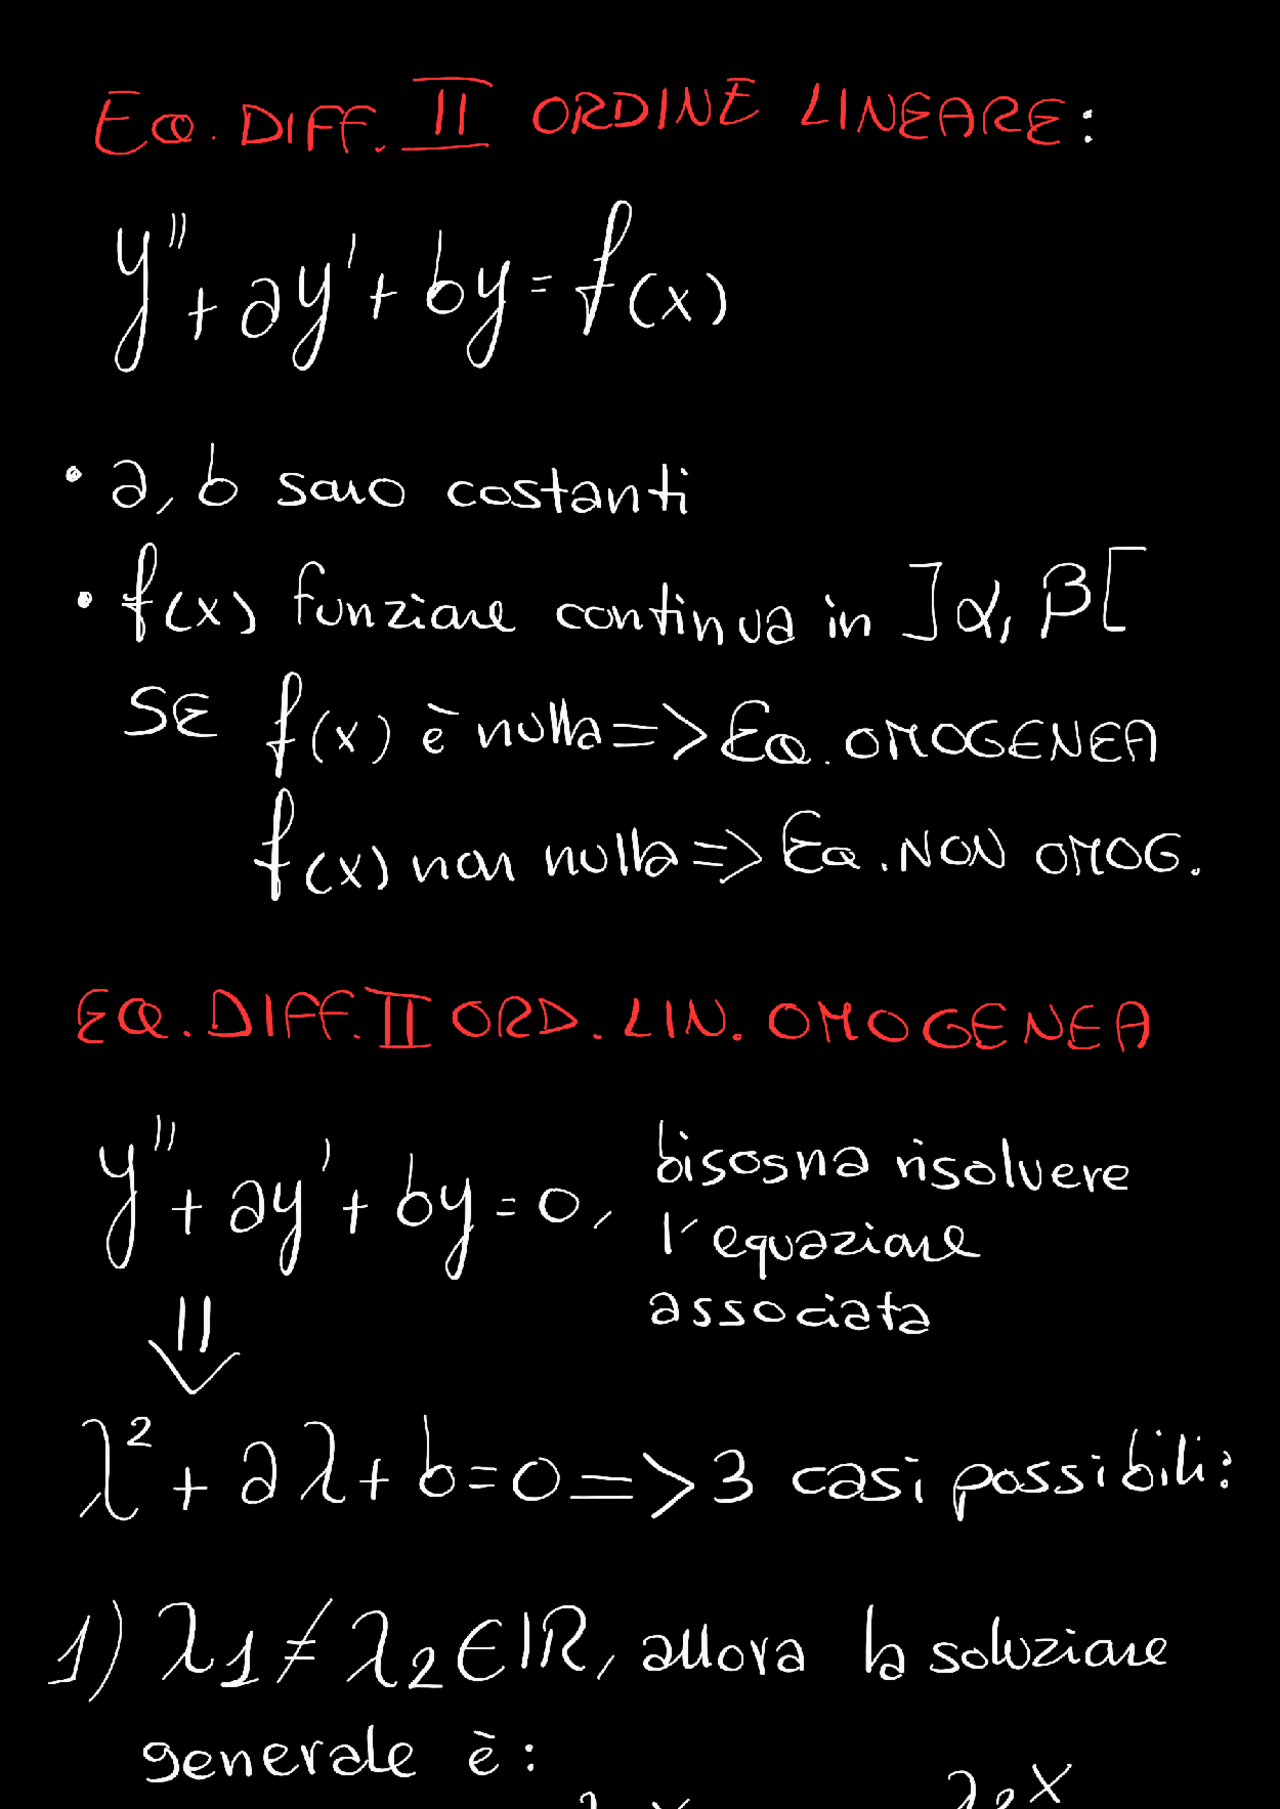 EQ. DIFF. II ORDINE LINEARE:
y'' + ay' + by = f(x)
• a, b sono costanti
• f(x) funzione continua in ]α, β[
SE f(x) è nulla => EQ. OMOGENEA
f(x) non nulla => EQ. NON OMOG.
EQ. DIFF. II ORD. LIN. OMOGENEA
y'' + ay' + by = 0, bisogna risolvere
l'equazione
associata
⇓
λ² + aλ + b = 0 => 3 casi possibili:
1) λ1 ≠ λ2 ∈ ℝ, allora la soluzione
generale è:
λ2x